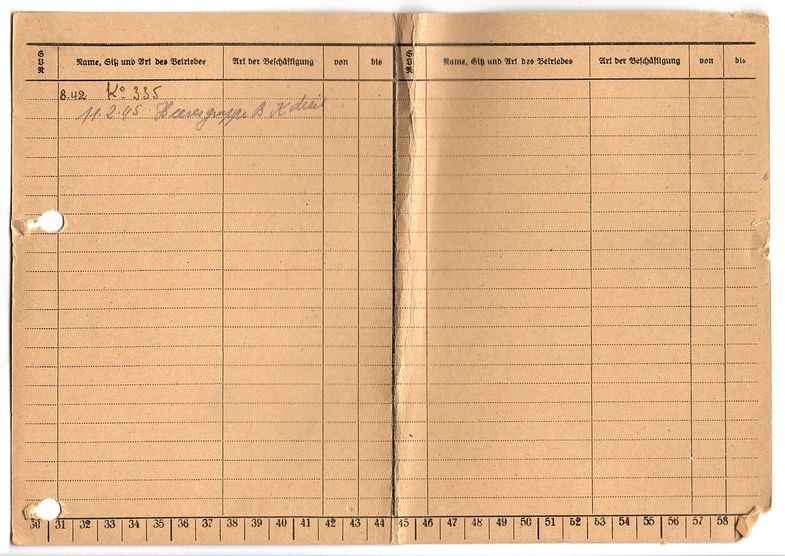 SVN Name, Sitz und Art des Betriebes Art der Beschäftigung von bis SVN Name, Sitz und Art des Betriebes Art der Beschäftigung von bis
8.42 Ko 335
11.2.45 Heeresgruppe B K
30 31 32 33 34 35 36 37 38 39 40 41 42 43 44 45 46 47 48 49 50 51 52 53 54 55 56 57 58